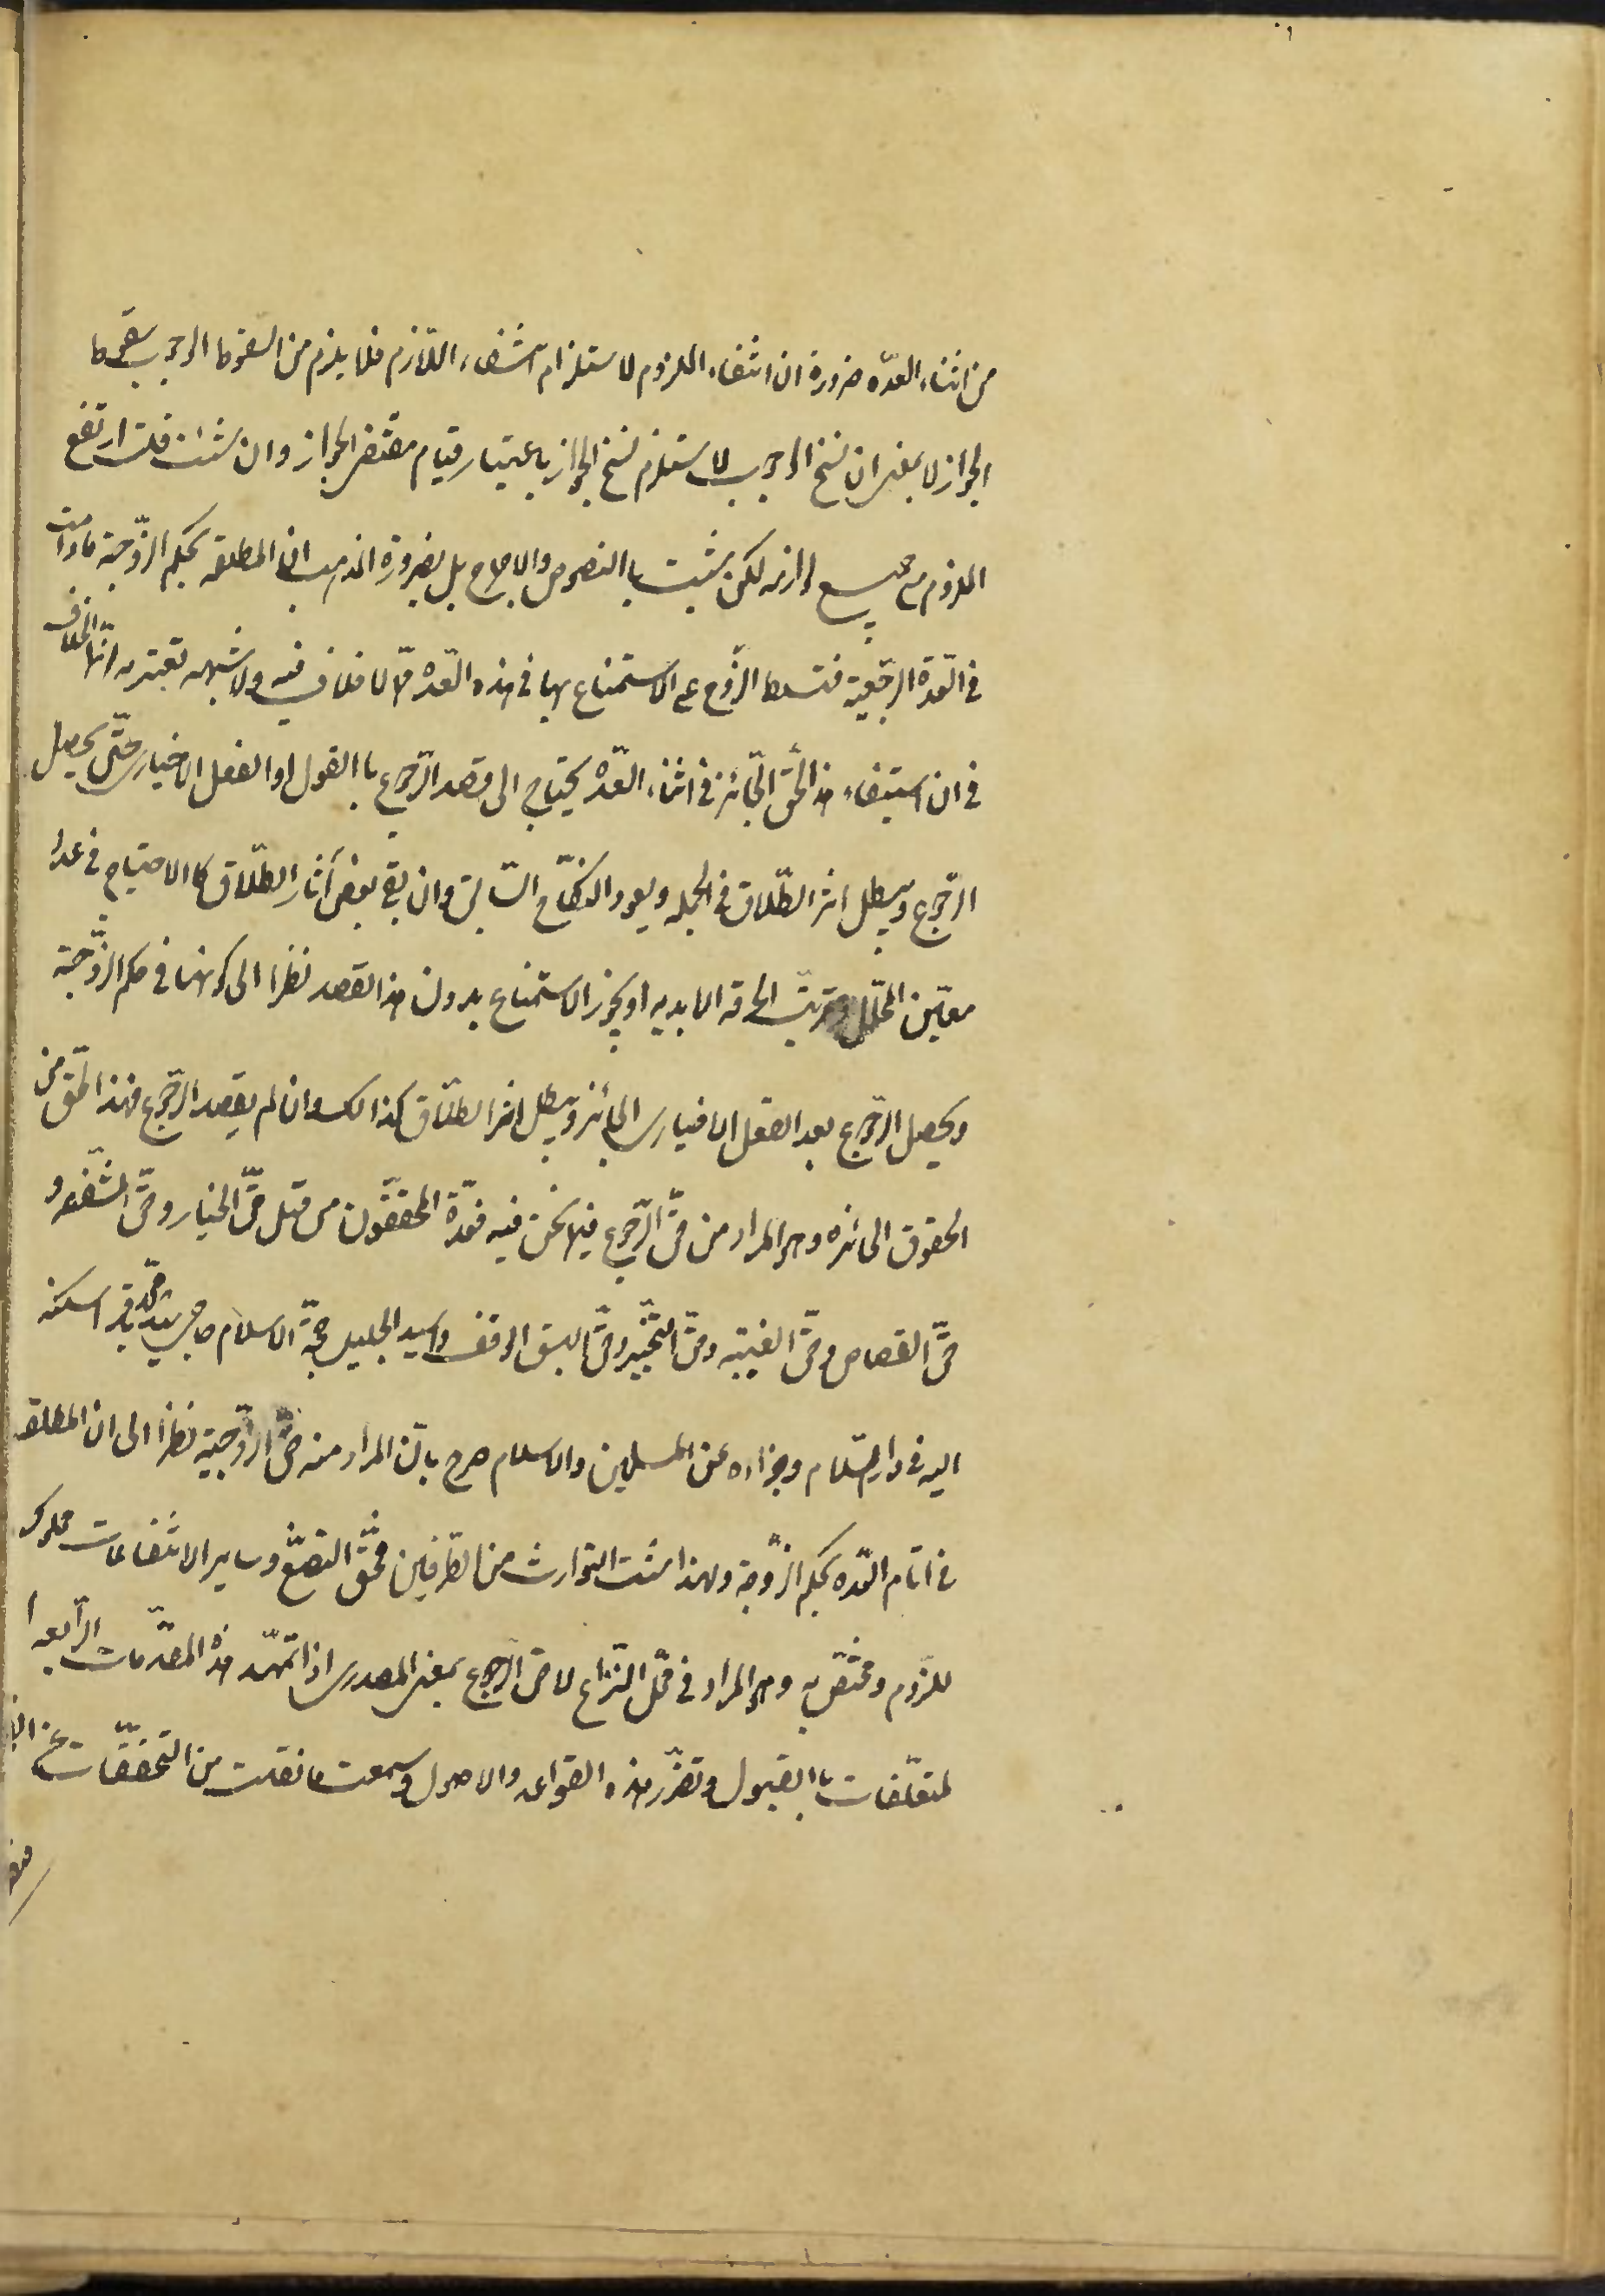 من اثناء العدّه ضرورة ان انتفاء الملزوم لا ستلزام انتفاء اللّازم فلا يلزم من السقوط الوجوب سقوط
الجواز لا بمعنى ان نسخ الوجوب لا يستلزم نسخ الجواز باعتبار قيام مقتضى الجواز وان شئت قلت ارتفع
الملزوم مع جميع لوازمه لكن يثبت با النصوص والاجماع بل بضرورة المذهب ان المطلقه بحكم الزّوجة مادامت
فى العّدة الرجّعية فتسلط الزّوج على الاستمتاع بها فى هذه العّده ممّا لا خلاف فيه ولا شبهه تعتريه انّما الخلاف
فى ان استيفاء هذا الحقّ الجّائز فى اثناء العّده يحتاج الى قصد الرّجوع با القول او الفعل الاختيارى حتّى يحصل
الرّجوع ويبطل اثر الطّلاق فى الجمله ويعود النكّاح السّابق وان بقى بعض آثار الطّلاق كا الاحتياج فى عدد
معيّن المحلّل وترتّب الحرمة الابديه او يجوز الاستمتاع بدون هذا القصد نظرا الى كونها فى حكم الزّوجّة
ويحصل الرّجوع بعد الفعل الاختيارى الجائز ويبطل اثر الطّلاق كذالك وان لم يقصد الرّجوع فهذا الحّق من
الحقوق الجائزه وهو المراد من حقّ الرّجوع فيما نحن فيه فعدّة المحققّون من قبل حقّ الخيار وحقّ الشّفعه و
حقّ القصاص وحقّ الغيبته وحقّ التحّجير وحقّ السبق الوقف والسيد الجليل حجّة الاسلام حاجى سيّد محمّد باقر اسكنه
اليه فى دار السّلام وجزاه عن المسلمين والاسلام صرح بانّ المراد منه حقّ الزّوجّية نظرا الى ان المطلقه
فى ايّام العّده بحكم الزّوجة ولهذا يثبت التوارث من الطّرفين فحقّ التمتّع وساير الانتفاعات مملوك
للزّوم ومختصّ به وهو المراد فى محّل النّزاع لا حقّ الرّجوع بمعنى المصدرى اذا تمهّد هذه المقدّمات الرّابعه ا
لمتلّقات با القبول وتقرّر هذه القواعد والاصول وسمعت ما نقلت من التحققّات عن